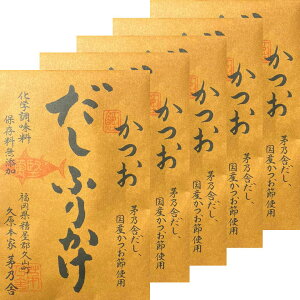 かつお
だしふりかけ
化学調味料
保存料無添加
茅乃舎だし、
国産かつお節使用
福岡県糟屋郡久山町
久原本家 茅乃舎
かつお
茅乃舎だし、
国産かつお節使用
かつお
茅乃舎だし、
国産かつお節使用
かつお
茅乃舎だし、
国産かつお節使用
かつお
茅乃舎だし、
国産かつお節使用